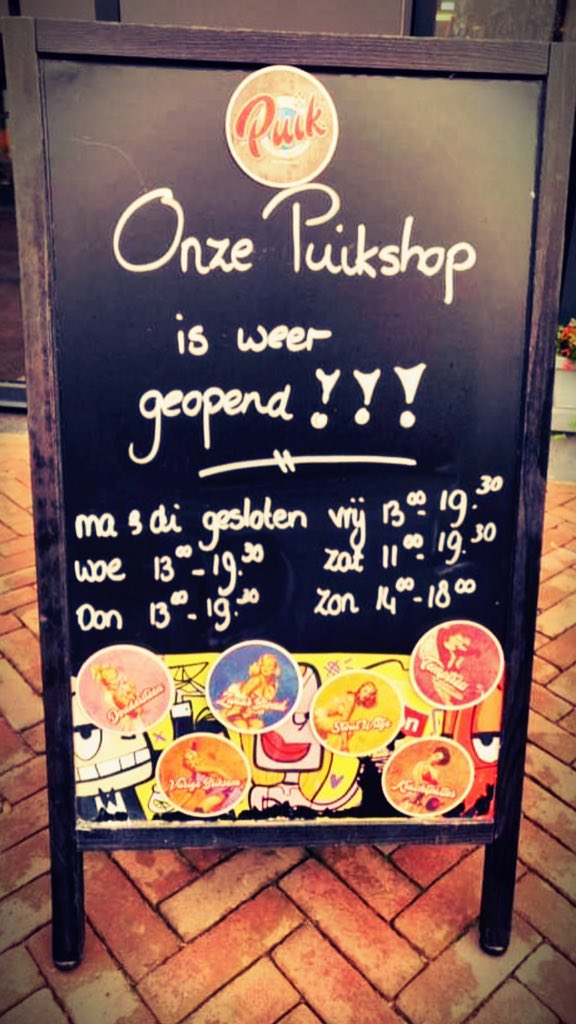 Puik
Onze Puikshop
is weer
geopend !!!
ma & di gesloten
woe 13⁰⁰ - 19.³⁰
Don 13⁰⁰ - 19.³⁰
vrij 13⁰⁰ - 19.³⁰
zat 11⁰⁰ - 19.³⁰
zon 14⁰⁰ - 18⁰⁰